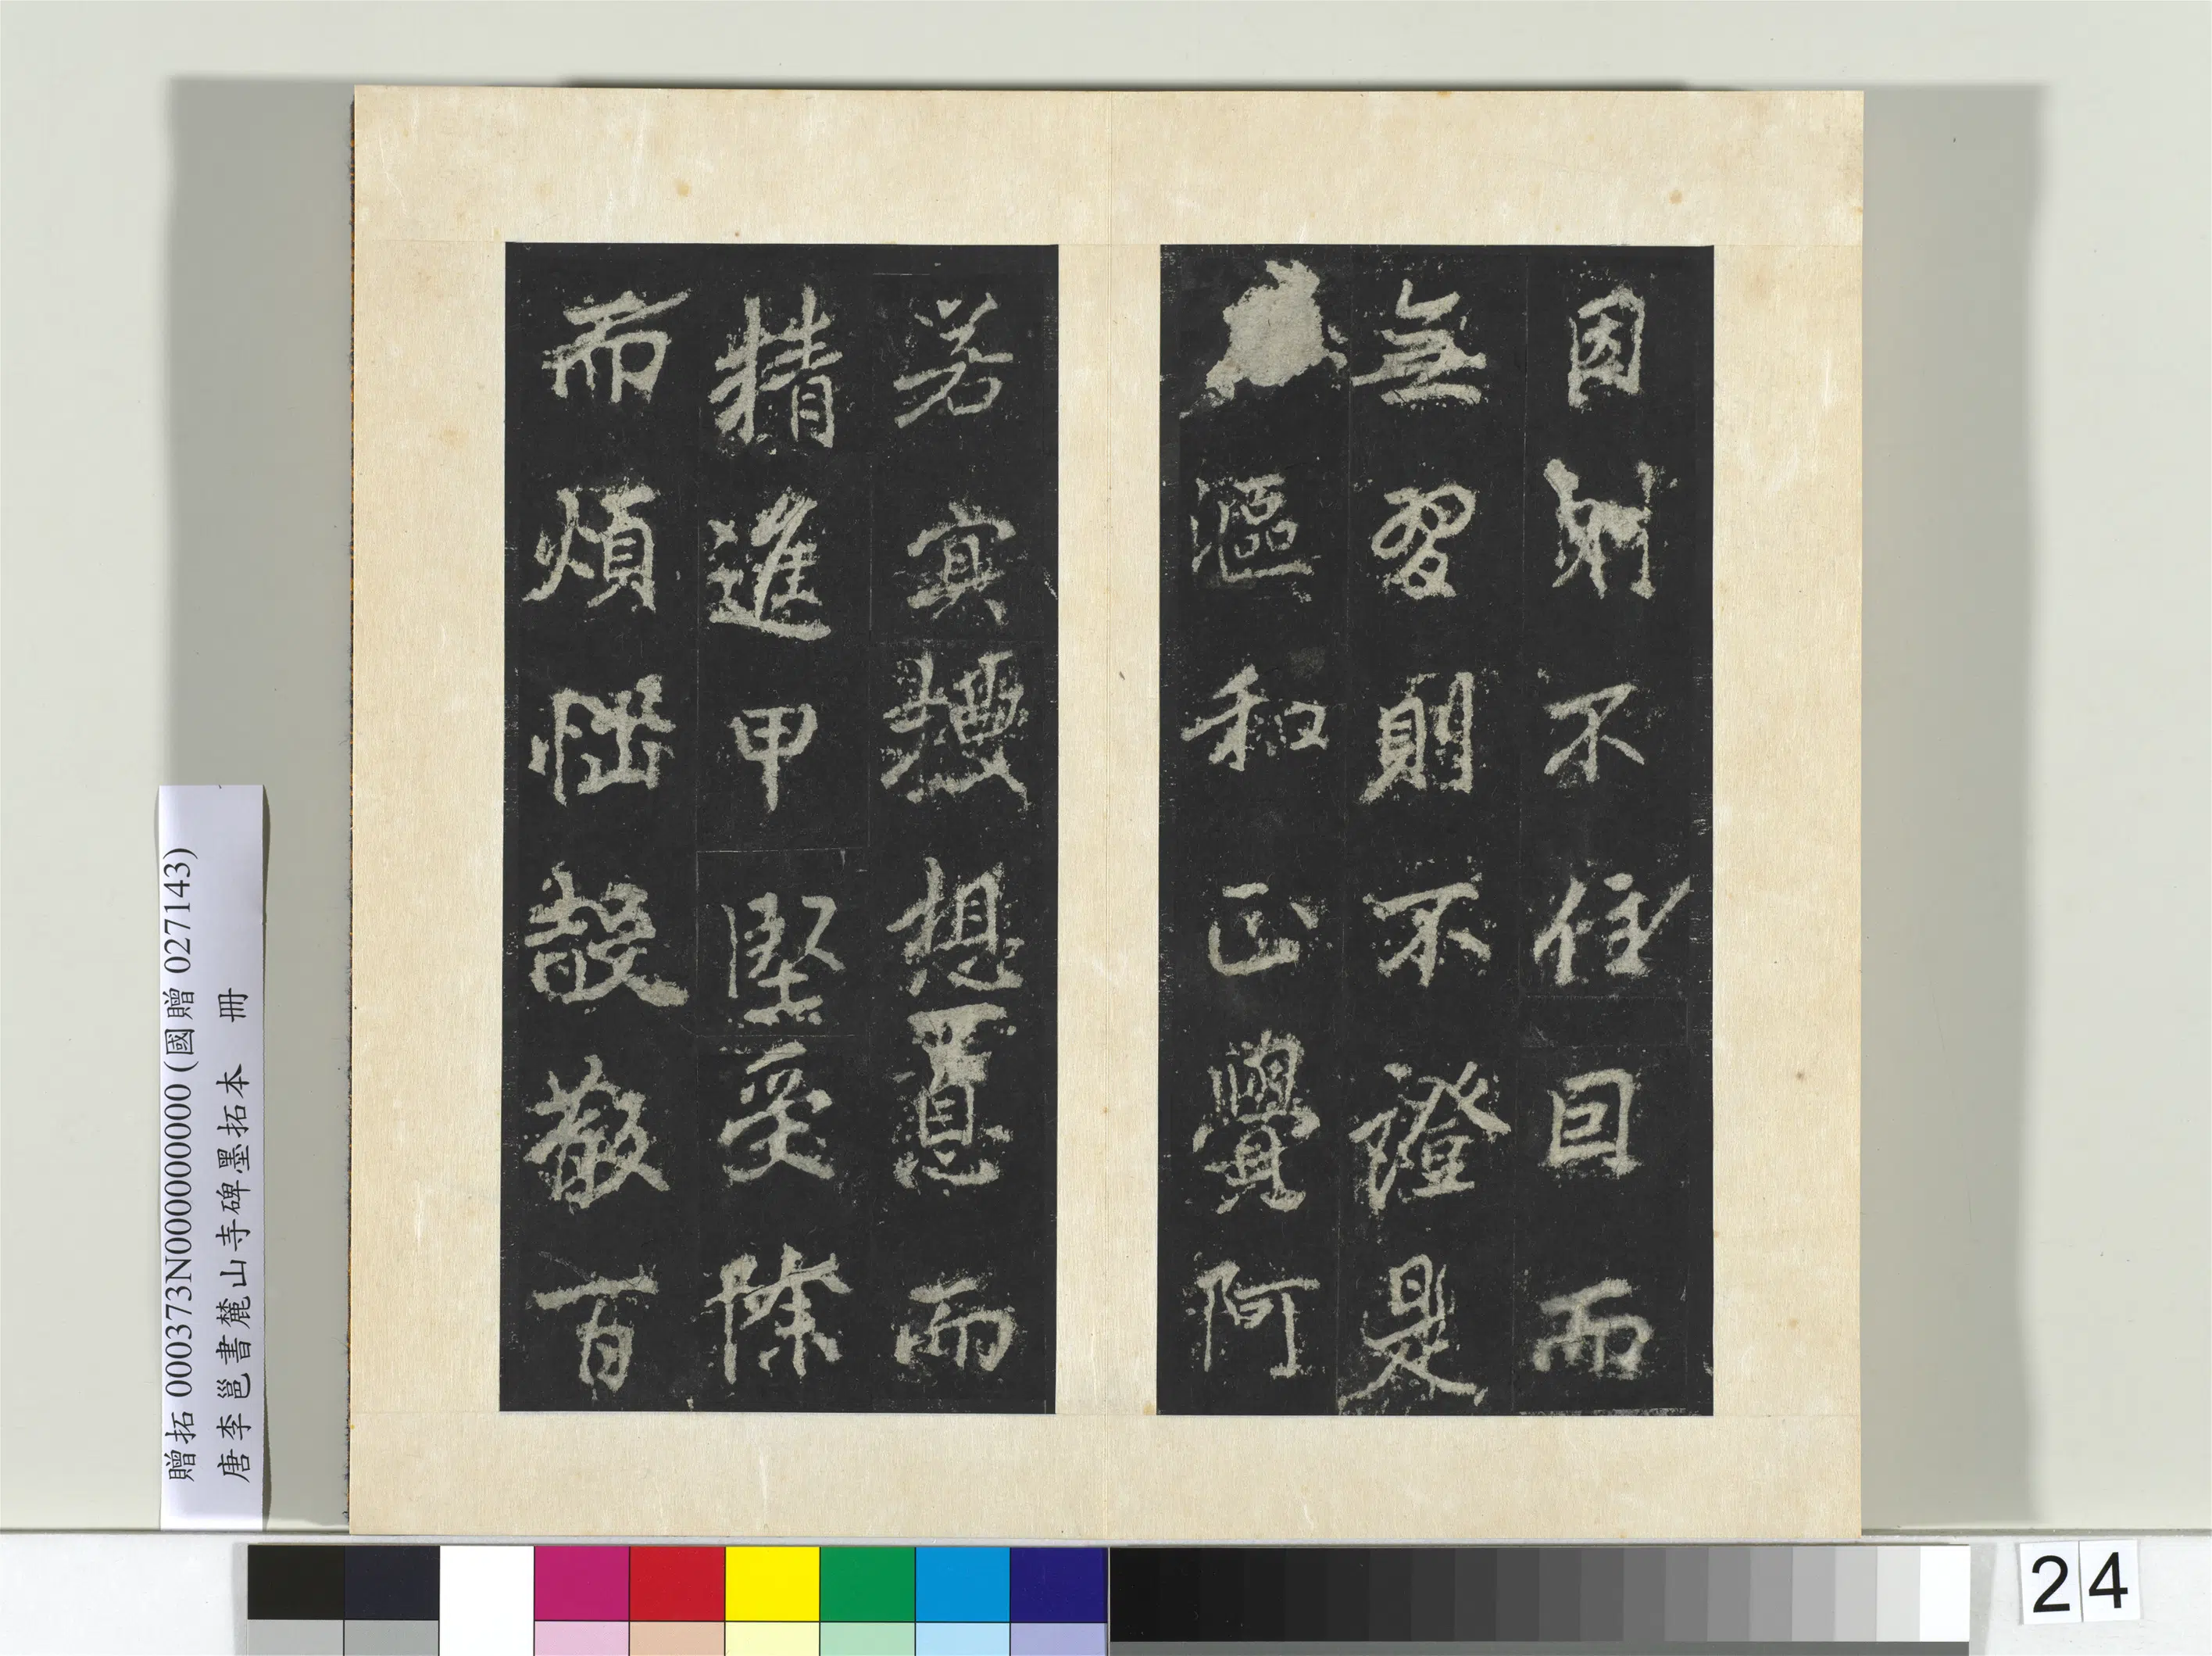 因不住囙而
無習則不證是
漚和正覺阿
若冥想息而
精進甲堅受除
而煩惱殼散百
贈拓 000373N000000000 (國贈 027143)
唐李邕書麓山寺碑墨拓本 冊
24